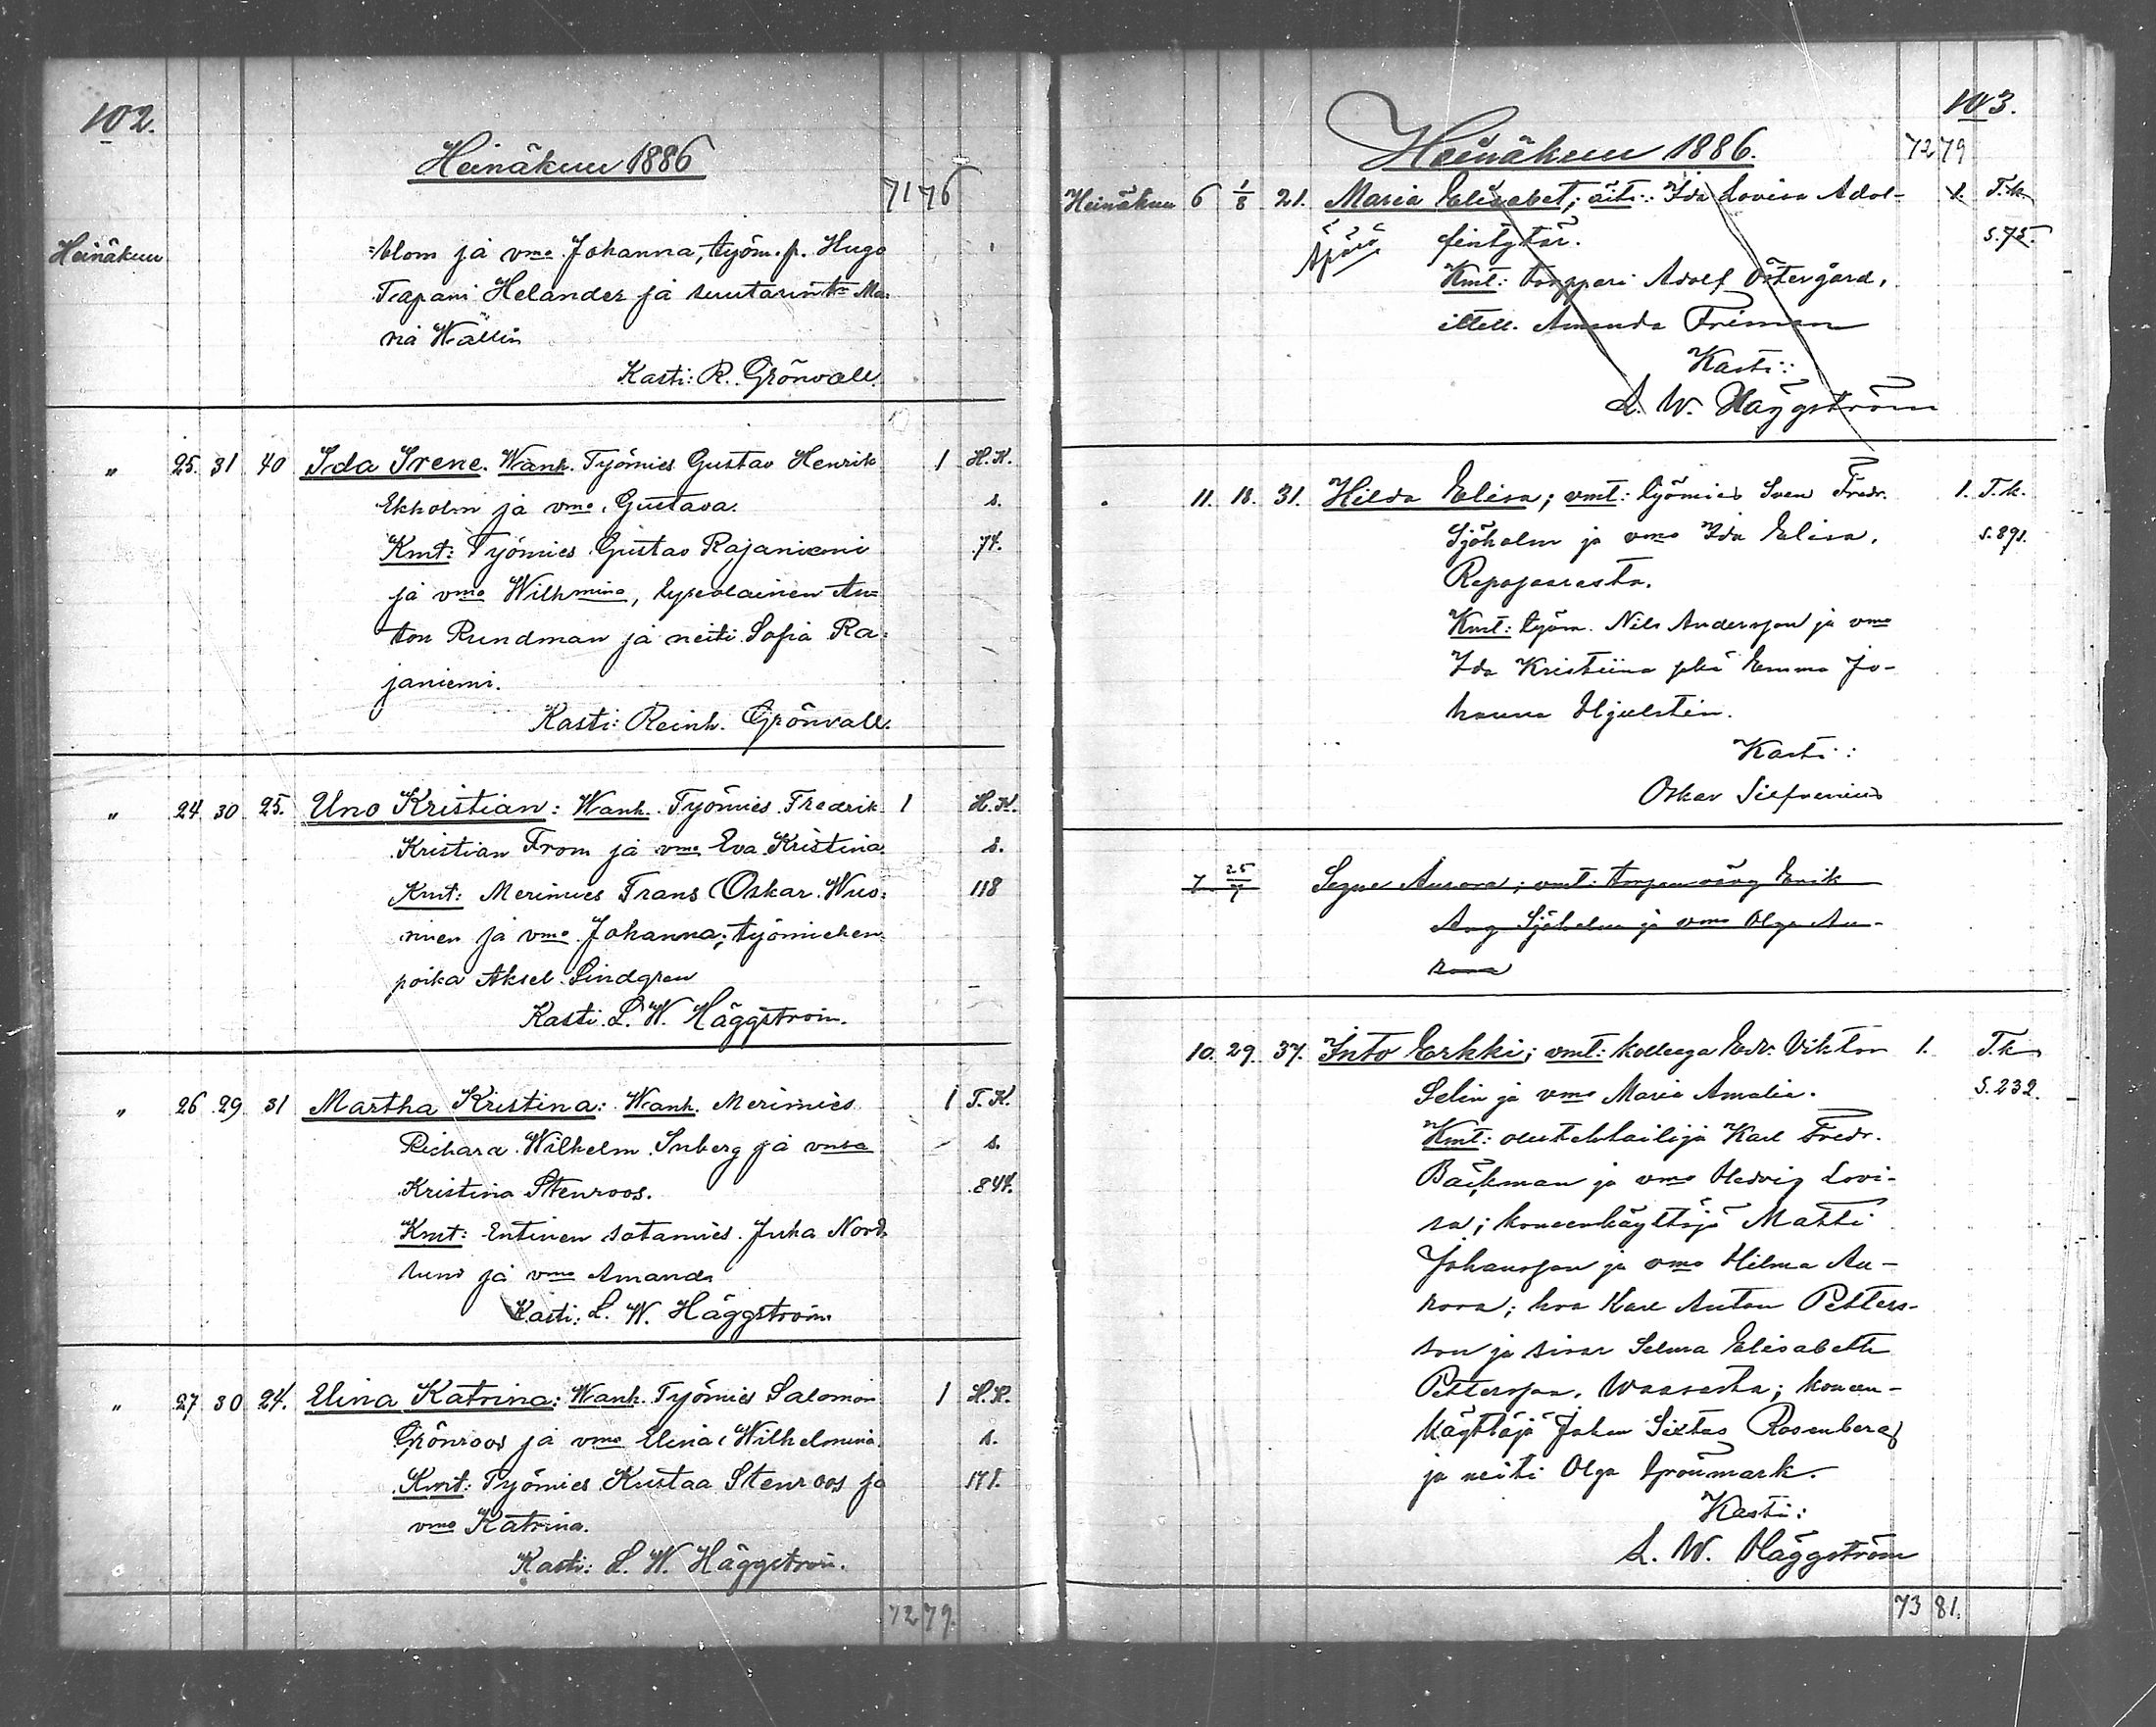 102.
Heinäkuu 1886
71 76
Heinäkuu blom ja vmo Johanna, työm. p. Hugo
Tapani Helander ja suutarin tr Ma-
ria Wallin
Kasti: R. Grönvall.
" 25. 31 40 Ida Irene. Wanh. Työmies Gustav Henrik 1 H.K.
Ekholm ja vmo. Gustava. s.
Kmt: Työmies Gustav Rajaniemi 74.
ja vmo Wilhmina, An=
ton Rundman ja neiti Sofia Ra-
janiemi.
Kasti: Reinh. Grönvall.
" 24 30 25. Uno Kristian: Wanh. Työmies Fredrik 1 H.K.
Kristian From ja vmo Eva Kristina. s.
Kmt: Merimies Frans Oskar Wuo- 118
rinen ja vmo Johanna; työmiehen
poika Aksel Lindgren
Kasti L. W. Häggström.
" 26 29 31 Martha Kristina: Wanh. Merimies 1 T.K.
Richard Wilhelm Inberg ja vmsa s.
Kristina Stenroos. 844.
Kmt: Entinen sotamies Juha Nord
lund ja vmo Amanda
Kasti: L. W. Häggström
" 27 30 24. Elina Katrina: Wanh. Työmies Salomon 1 H.K.
Grönroos ja vmo Elina Wilhelmina. s.
Kmt: Työmies Kustaa Stenroos ja 171.
vmo Katrina.
Kasti: L. W. Häggström.
72 79.
103.
Heinäkuu 1886.
72 79
Heinäkuu 6 1/8 21. Maria Elisabet; äiti: Ida Lovisa Adol- 1. T.k.
Äpärä fintytär. s. 75.
Kmt: torppari Adolf Östergård,
ittell. Amanda Friman
Kasti:
L. W. Häggström
11. 18. 31. Hilda Elisa; vmt: työmies Sven Fredr. 1. T.k.
Sjöholm ja vmo Ida Elisa, s. 891.
Repojaaresta.
Kmt: työm. Nils Andersson ja vmo
Ida Kristiina Emma Jo-
hanna Hjulstin.
Kasti:
Oskar
7 25/7 Signe Aurora; vmt: Erik
Aug Sjöholm ja vmo Olga Au-
rora
10. 29. 37. Into Erkki; vmt: kolleega Edv. Viktor 1. T.k.
Selin ja vmo Maria Amalia. s. 232.
Kmt: oluttehtailija Karl Fredr.
Bäckman ja vmo Hedvig Lovi-
sa; koneenkäyttäjä Matti
Johansson ja vmo Hilma Au-
rora; hra Karl Anton Petters-
son ja sisar Selma Elisabeth
Pettersson, Waasasta; koneen-
käyttäjä Johan Sixtus Rosenberg
ja neiti Olga Grönmark.
Kasti:
L. W. Häggström
73 81.